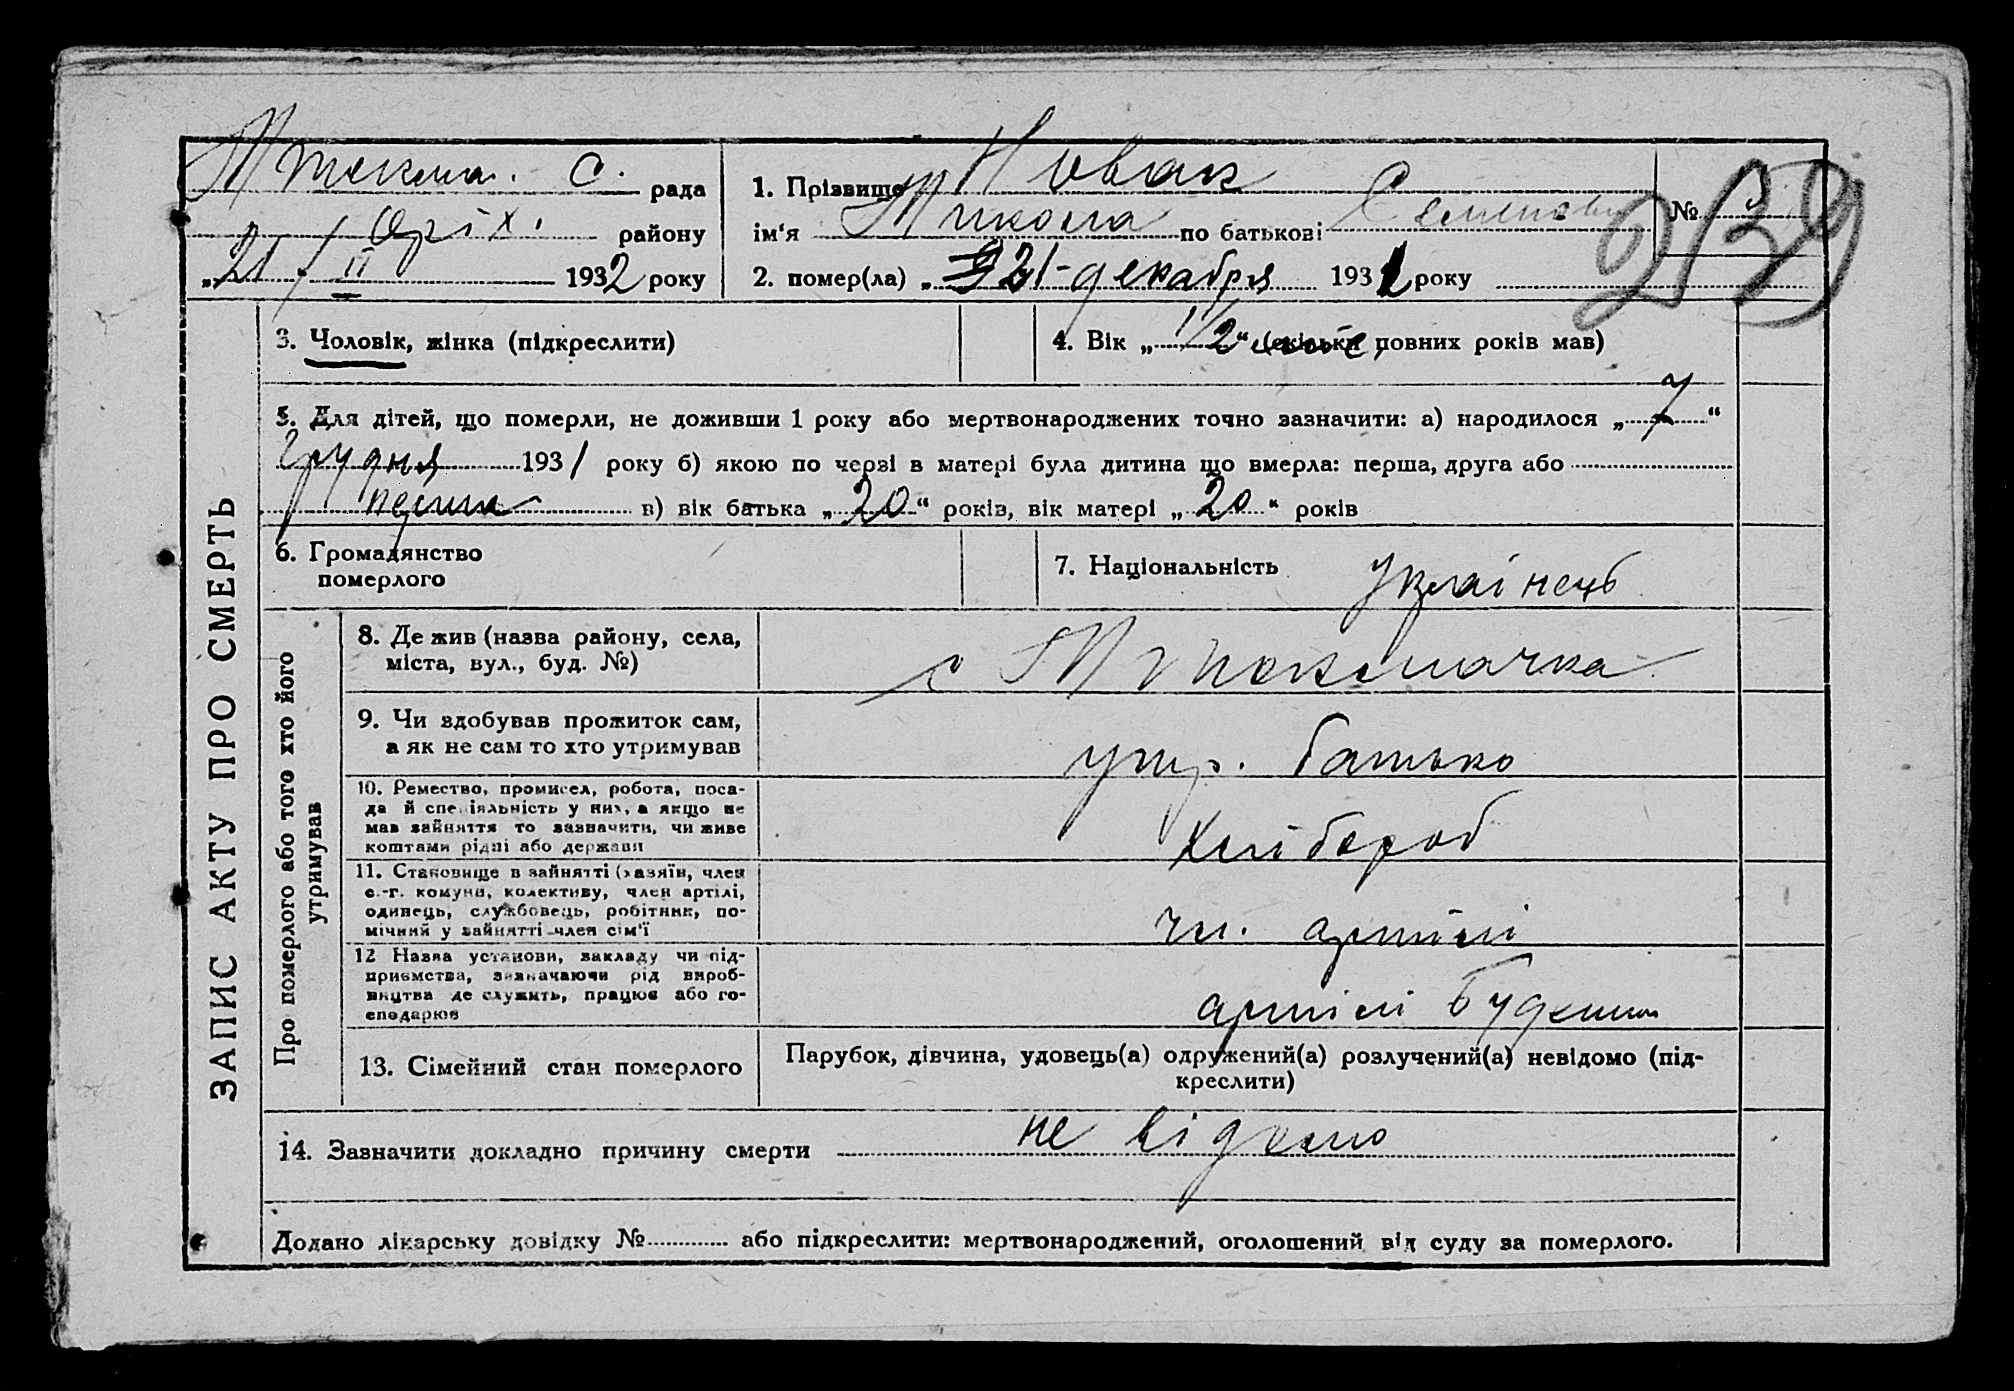 С. рада
Оріх. району
„21 / II 1932 року
1. Прізвище Новак
ім'я Микола по батькові Семенович
2. помер(ла) „21-декабря 1931 року
№ 3
239
ЗАПИС АКТУ ПРО СМЕРТЬ
3. Чоловік, жінка (підкреслити)
4. Вік „1/2“ (скільки повних років мав)
5. Для дітей, що померли, не доживши 1 року або мертвонароджених точно зазначити: а) народилося „7“
Грудня 1931 року б) якою по черзі в матері була дитина що вмерла: перша, друга або
перша в) вік батька „20“ років, вік матері „20“ років
6. Громадянство
померлого
7. Національність Українець
Про померлого або того хто його
утримував
8. Де жив (назва району, села,
міста, вул., буд. №)
с
9. Чи здобував прожиток сам,
а як не сам то хто утримував
утр. батько
10. Ремество, промисел, робота, поса-
да й спеціяльність у них, а якщо не
мав зайняття то зазначити, чи живе
коштами рідні або держави
Хлібороб
11. Становище в зайнятті (хазяїн, член
с.-г. комуни, колективу, член артілі,
одинець, службовець, робітник, по-
мічний у зайнятті-член сім'ї
чл. артілі
12 Назва установи, закладу чи під-
приємства, зазначаючи рід вироб-
ництва де служить, працює або го-
сподарює
артілі
13. Сімейний стан померлого
Парубок, дівчина, удовець(а) одружений(а) розлучений(а) невідомо (під-
креслити)
14. Зазначити докладно причину смерти не відомо
Додано лікарську довідку № або підкреслити: мертвонароджений, оголошений від суду за померлого.